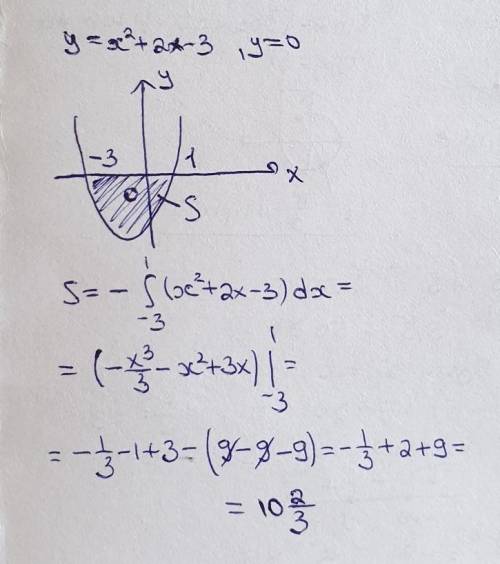 y = x² + 2x - 3 , y = 0
y
-3 1
x
S
S = - ∫₋₃¹ (x² + 2x - 3) dx =
= (-x³/3 - x² + 3x) |₋₃¹ =
= -1/3 - 1 + 3 - (9 - 9 - 9) = -1/3 + 2 + 9 =
= 10 2/3